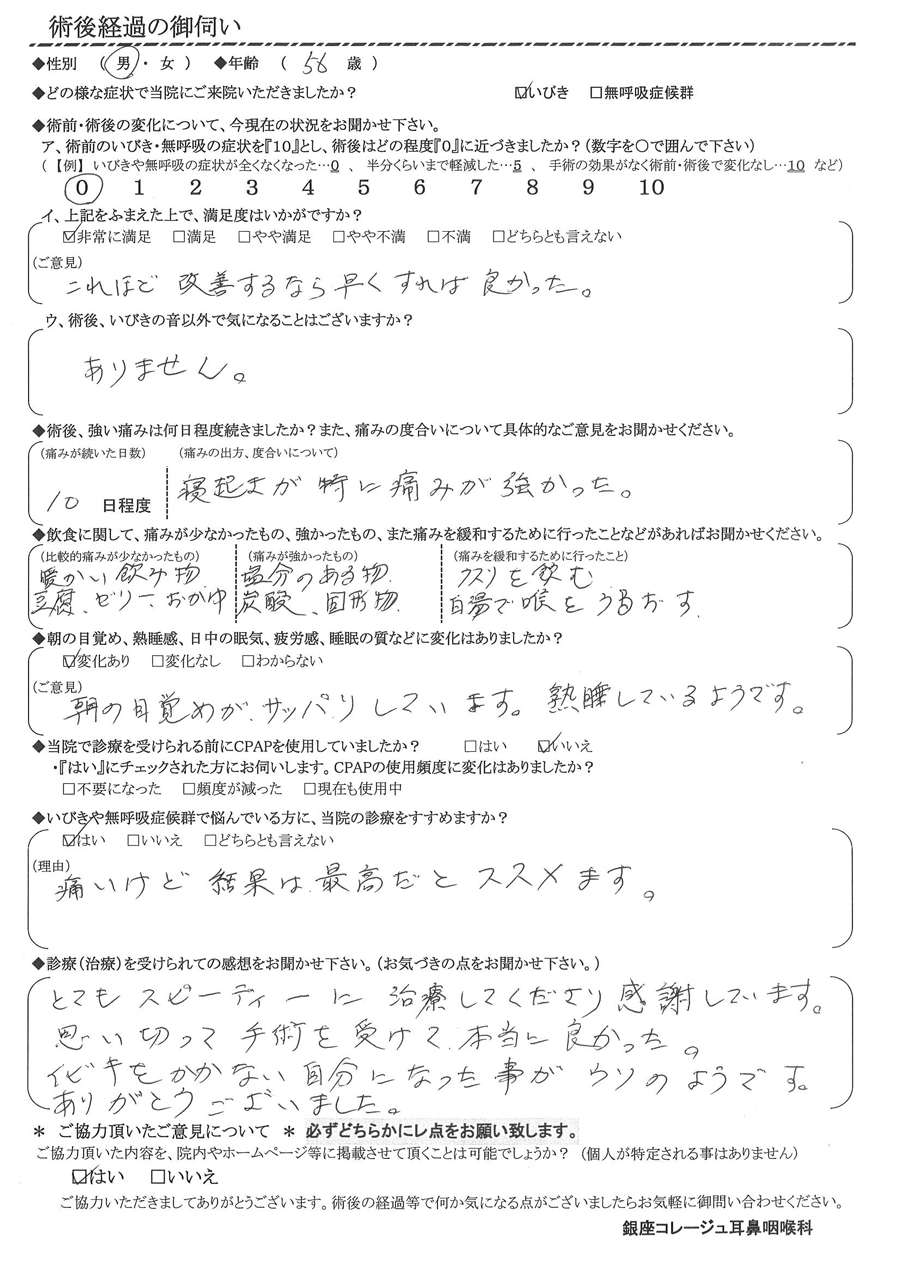 術後経過の御伺い
◆性別 (男・女) ◆年齢 ( 56 歳 )
◆どの様な症状で当院にご来院いただきましたか? ☑いびき □無呼吸症候群
◆術前・術後の変化について、今現在の状況をお聞かせ下さい。
ア、術前のいびき・無呼吸の症状を『10』とし、術後はどの程度『0』に近づきましたか?(数字を○で囲んで下さい)
(【例】いびきや無呼吸の症状が全くなくなった…0 、 半分くらいまで軽減した…5 、 手術の効果がなく術前・術後で変化なし…10 など)
0 1 2 3 4 5 6 7 8 9 10
イ、上記をふまえた上で、満足度はいかがですか?
☑非常に満足 □満足 □やや満足 □やや不満 □不満 □どちらとも言えない
(ご意見)
これほど 改善するなら早くすれば良かった。
ウ、術後、いびきの音以外で気になることはございますか?
ありません。
◆術後、強い痛みは何日程度続きましたか?また、痛みの度合いについて具体的なご意見をお聞かせください。
(痛みが続いた日数) (痛みの出方、度合いについて)
10 日程度 寝起きが特に痛みが強かった。
◆飲食に関して、痛みが少なかったもの、強かったもの、また痛みを緩和するために行ったことなどがあればお聞かせください。
(比較的痛みが少なかったもの) (痛みが強かったもの) (痛みを緩和するために行ったこと)
暖かい飲み物 塩分のある物. クスリを飲む
豆腐、ゼリー、おかゆ 炭酸、固形物. 白湯で喉をうるおす.
◆朝の目覚め、熟睡感、日中の眠気、疲労感、睡眠の質などに変化はありましたか?
☑変化あり □変化なし □わからない
(ご意見)
朝の目覚めが、サッパリしています。熟睡しているようです。
◆当院で診療を受けられる前にCPAPを使用していましたか? □はい ☑いいえ
・『はい』にチェックされた方にお伺いします。CPAPの使用頻度に変化はありましたか?
□不要になった □頻度が減った □現在も使用中
◆いびきや無呼吸症候群で悩んでいる方に、当院の診療をすすめますか?
☑はい □いいえ □どちらとも言えない
(理由)
痛いけど 結果は、最高だとススメます。
◆診療(治療)を受けられての感想をお聞かせ下さい。(お気づきの点をお聞かせ下さい。)
とてもスピーディーに治療してくださり感謝しています。
思い切って手術を受けて、本当に良かった。
イビキをかかない自分になった事がウソのようです。
ありがとうございました。
* ご協力頂いたご意見について * 必ずどちらかにレ点をお願い致します。
ご協力頂いた内容を、院内やホームページ等に掲載させて頂くことは可能でしょうか? (個人が特定される事はありません)
☑はい □いいえ
ご協力いただきましてありがとうございます。術後の経過等で何か気になる点がございましたらお気軽に御問い合わせください。
銀座コレージュ耳鼻咽喉科